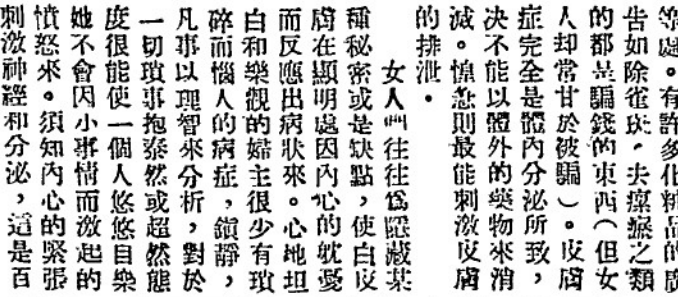 等處。有許多化粧品的廣
告如除雀斑，去瘢瘢之類
的都是騙錢的東西（但女
人却常甘於被騙）。皮膚
症完全是體內分泌所致，
决不能以體外的藥物來消
滅。惶急則最能刺激皮膚
的排泄。
女人們往往爲隱藏某
種秘密或是缺點，使白皮
膚在顯明處因內心的躭憂
而反應出病狀來。心地坦
白和樂觀的婦主很少有瑣
碎而惱人的病症，鎮靜，
凡事以理智來分析，對於
一切瑣事抱泰然或超然態
度很能使一個人悠悠自樂
她不會因小事情而激起的
憤怒來。須知內心的緊張
刺激神經和分泌，這是百